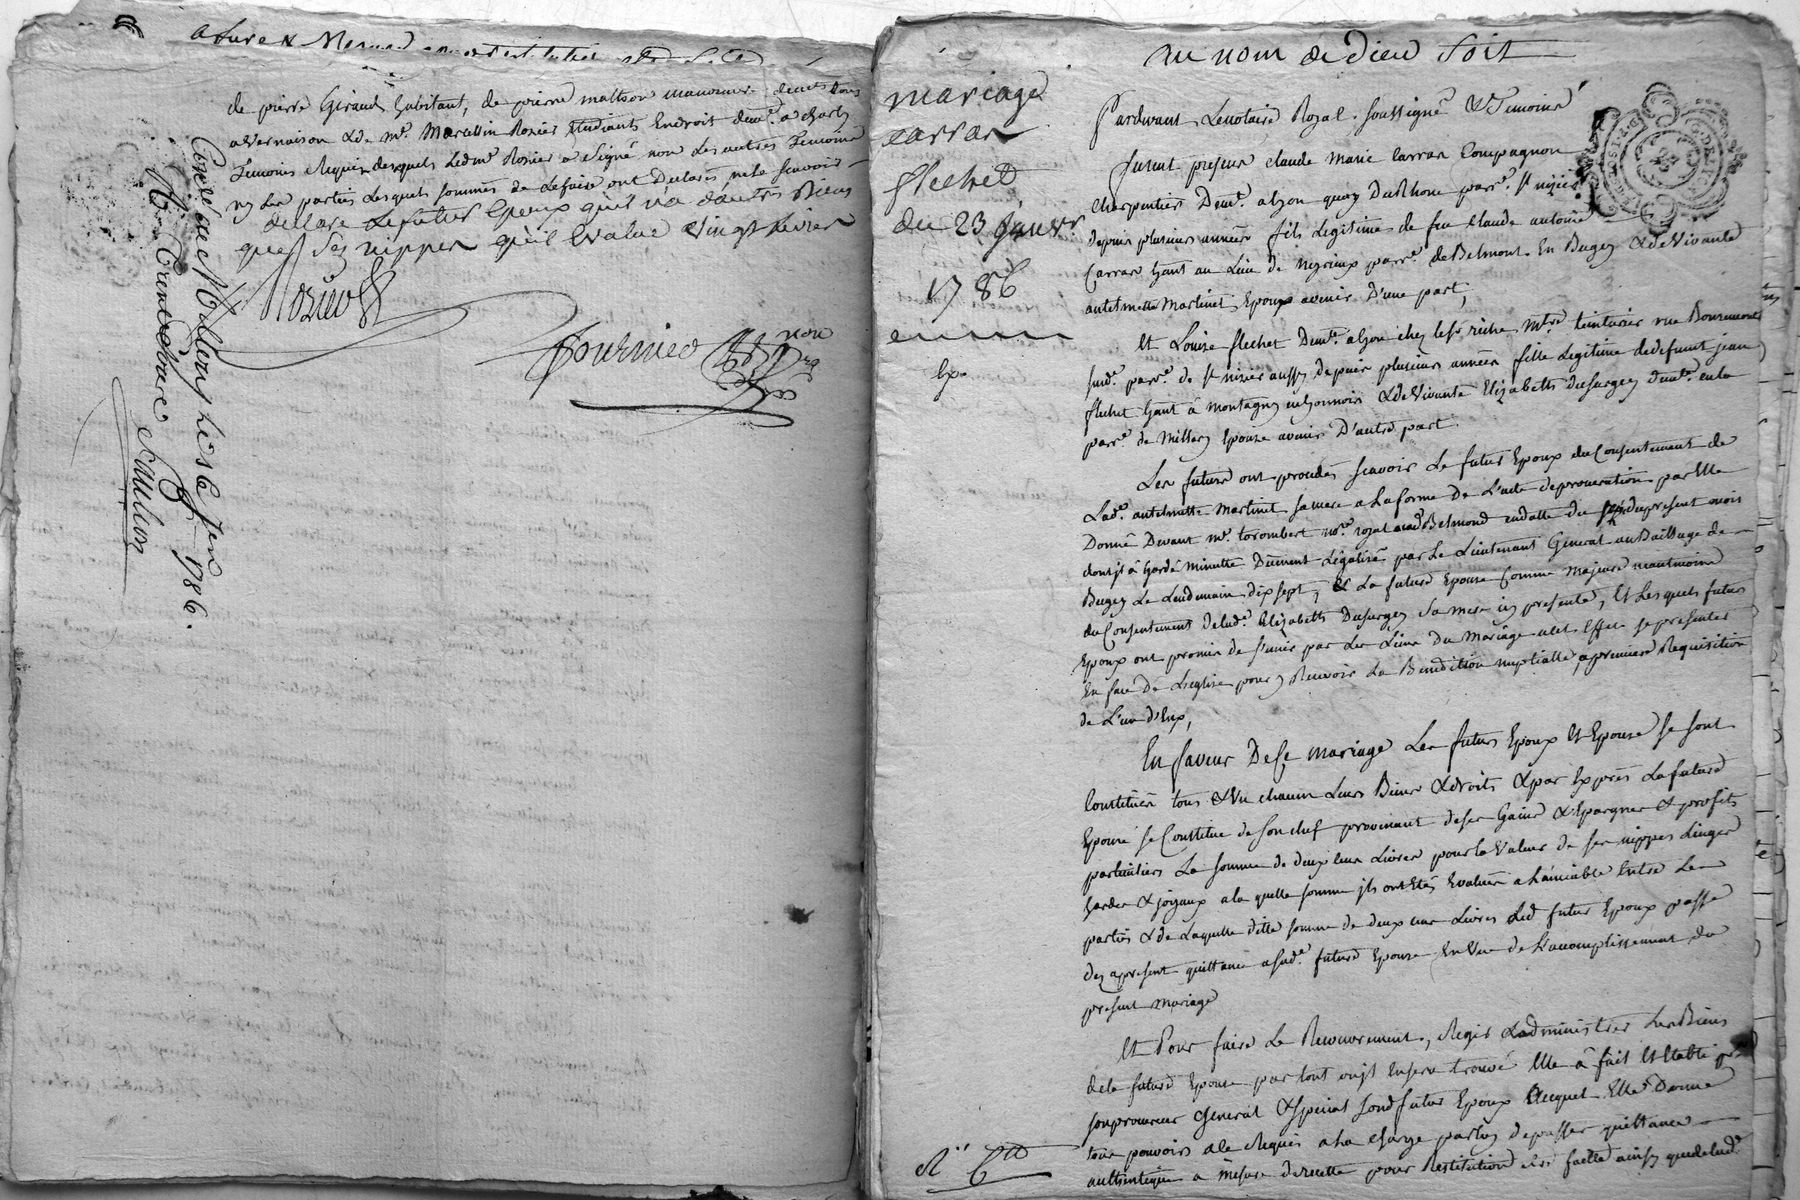 de pierre Giraud habitant, de pierre mathon manouvrier demt. tous
a Vernaison & de mr. Marcellin Rozier Etudiant En droit demt. a Charly
Temoins Requis desquels Led. mr. Rozier a Signé non Les autres Temoins
ny Les parties Lesquels sommés de Lefaire ont Declarés ne le scavoir
declare Le futur Epoux qu'il n'a d'autres Biens
que ses nippes qu'il Evalue vingt Livres
Rozier
Fournier
Conllé au
Le 31 Jenv 1786.
Rx Trente
au nom de Dieu soit
mariage
carran
flechet
du 23 janvr.
1786
Ex.
Pardevant Le notaire Royal soussigné & Temoins
furent presens claude Marie Carran Compagnon
charpentier Demt. a Lyon quay Du Rhone parr.e St. nizier
depuis plusieurs années fils Legitime de feu Claude antoine
Carran hant. au Lieu de parr.e de Belmont En Bugey & de Vivante
antelmette Martinet Epoux avenir D'une part,
Et Louise flechet Demt. a Lyon chez le sr. riche mtre. teinturier rue
sud. parr.e de St nizier aussy depuis plusieurs années fille Legitime de deffunt jean
flechet hant. à montagny en lyonnois & de Vivante Elizabeth Dusurgey demt. en la
parr.e de Millery Epouse avenir D'autre part
Les futurs ont procedés scavoir Le futur Epoux du Consentement de
Lad.e antelmette Martinet sa mere a La forme De L'acte de procuration par Elle
Donné Devant mr. torombert nre. royal aud. Belmond en datte du du present mois
dont il à Gardé minutte Duement Legalisée par Le Lieutenant General au Baillage de
Bugey Le Lendemain dix sept, & La future Epouse Comme Majeure neantmoins
du Consentement de lad.e Elizabeth Dusurgey sa mere icy presente, Et Les quels futurs
Epoux ont promis de s'unir par Les Liens Du Mariage a cet Effet se presenter
En face De L'eglise pour y Recevoir La Benediction nuptialle a premiere Requisition
de L'un d'Eux,
En faveur De Ce mariage Les futurs Epoux Et Epouse se sont
Constitués tous & Un chacun Leurs Biens & droits & par Exprès La future
Epouse se Constitue de son chef provenant de ses Gains & Epargnes & profits
particuliers La somme de deux cens Livres pour la Valeur de ses nippes Linges
hardes & joyaux a la quelle somme ils ont Etés Evalués a L'amiable Entre Les
parties & de Laquelle ditte somme de deux cens Livres Led. futur Epoux passe
dez apresent quittance a sad.e future Epouse En Vue de L'accomplissement du
present mariage
Et Pour faire Le Recouvrement, Regir & administrer Les Biens
de la future Epouse par tout ou il En sera trouvé Elle à fait Et Etabli pr.
son procureur General & special sond. futur Epoux Auquel Elle Donne
tous pouvoirs a le Requis a La charge par luy de passer quittance
authentique a mesure de recette pour Restitution En Etre faitte ainsy que de lad.e